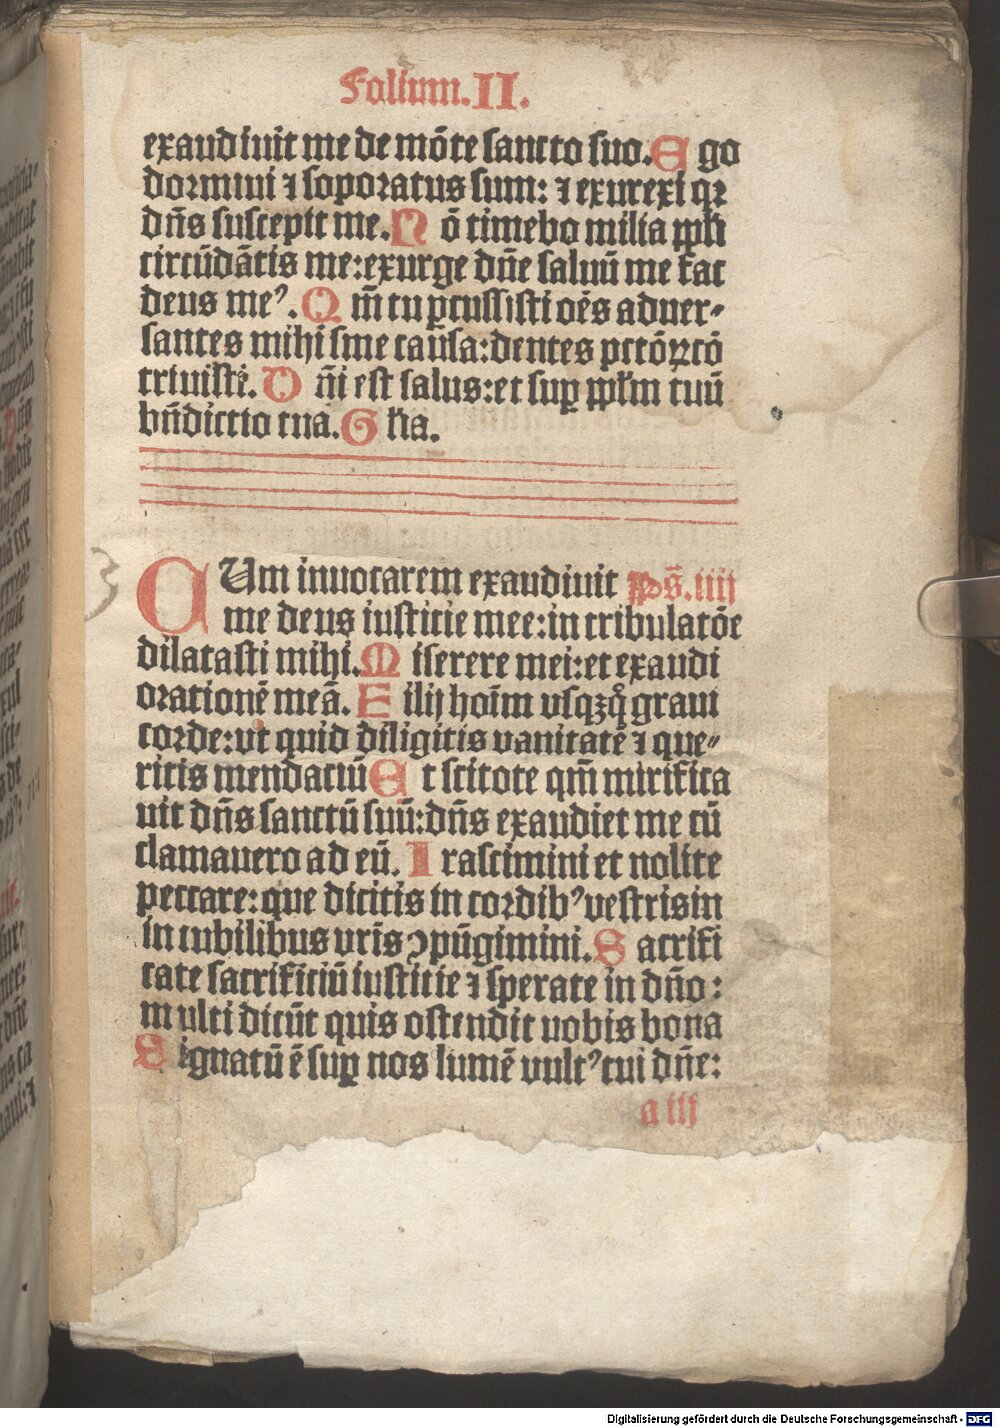 Folium. II.
exaudiuit me de mōte sancto suo. E go
dormiui ⁊ soporatus sum: ⁊ exurexi qꝛ
dn̄s suscepit me. N ō timebo milia ppl̄i
circūdātis me: exurge dn̄e saluū me fac
deus meꝰ. Q m̄ tu ꝑcussisti oēs aduer⸗
santes mihi sine causa: dentes pctōꝝ cō
triuisti. D n̄i est salus: et suꝑ ppl̄m tuū
bn̄dictio tua. G l̄ia.
C Um inuocarem exaudiuit Ps̄. iiij
me deus iusticie mee: in tribulatōe
dilatasti mihi. M iserere mei: et exaudi
orationē meā. F ilij hoīm vsqꝫ q̊ graui
corde: vt quid diligitis vanitatē ⁊ que⸗
ritis mendaciū E t scitote qm̄ mirifica
uit dn̄s sanctū suū: dn̄s exaudiet me cū
clamauero ad eū. I rascimini et nolite
peccare: que dicitis in cordibꝰ vestris in
in cubilibus vr̄is ꝯpūgimini. S acrifi
cate sacrificiū iusticie ⁊ sperate in dn̄o:
multi dicūt quis ostendit nobis bona
S ignatū ē suꝑ nos lumē vultꝰ tui dn̄e:
a iij
Digitalisierung gefördert durch die Deutsche Forschungsgemeinschaft - DFG